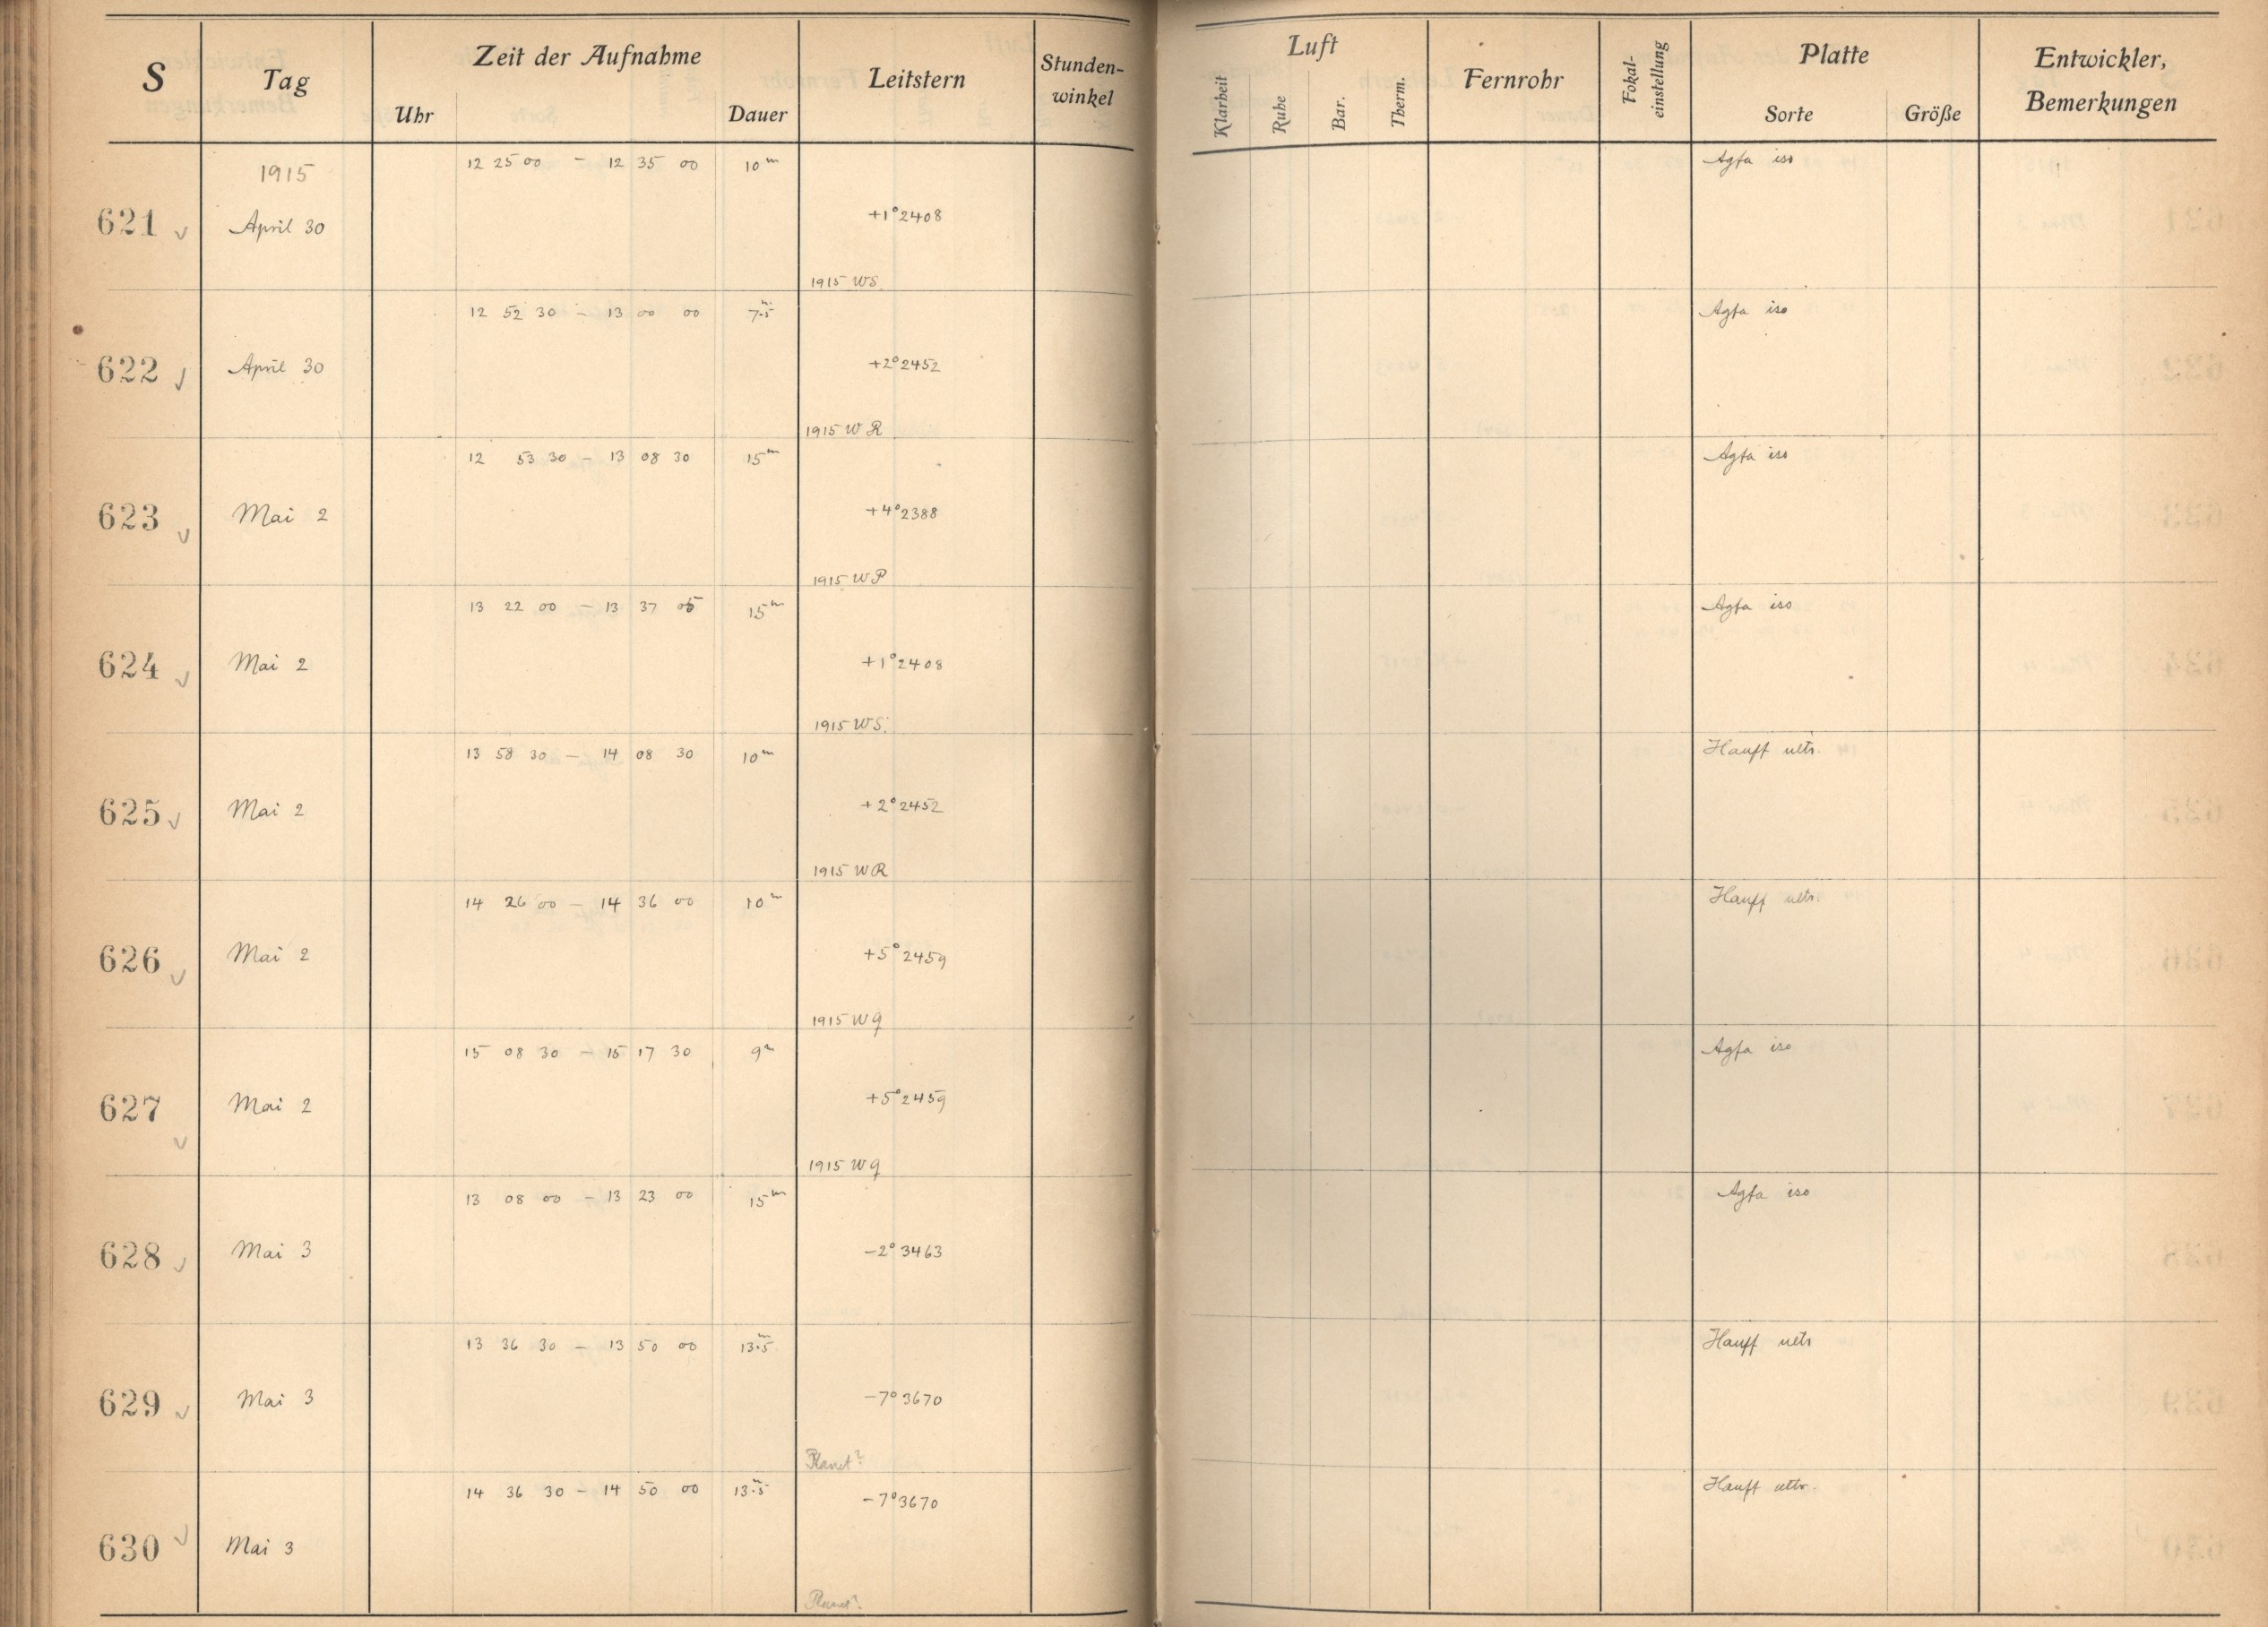 S Tag Zeit der Aufnahme Leitstern Stunden-winkel Luft Fernrohr Fokal-einstellung Platte Entwickler, Bemerkungen
Uhr Dauer Klarheit Ruhe Bar. Therm. Sorte Größe
1915 12 25 00 - 12 35 00 10m Agfa iso
621 April 30 +1°2408
1915 WS
12 52 30 - 13 00 00 7.5m Agfa iso
622 April 30 +2°2452
1915 WR
12 53 30 - 13 08 30 15m Agfa iso
623 Mai 2 +4°2388
1915 WP
13 22 00 - 13 37 05 15m Agfa iso
624 Mai 2 +1°2408
1915 WS
13 58 30 - 14 08 30 10m Hauff ultr.
625 Mai 2 +2°2452
1915 WR
14 26 00 - 14 36 00 10m Hauff ultr.
626 Mai 2 +5°2459
1915 WQ
15 08 30 - 15 17 30 9m Agfa iso
627 Mai 2 +5°2459
1915 WQ
13 08 00 - 13 23 00 15m Agfa iso
628 Mai 3 -2°3463
13 36 30 - 13 50 00 13.5m Hauff ultr
629 Mai 3 -7°3670
Planet?
14 36 30 - 14 50 00 13.5m -7°3670 Hauff ultr.
630 Mai 3
Planet?